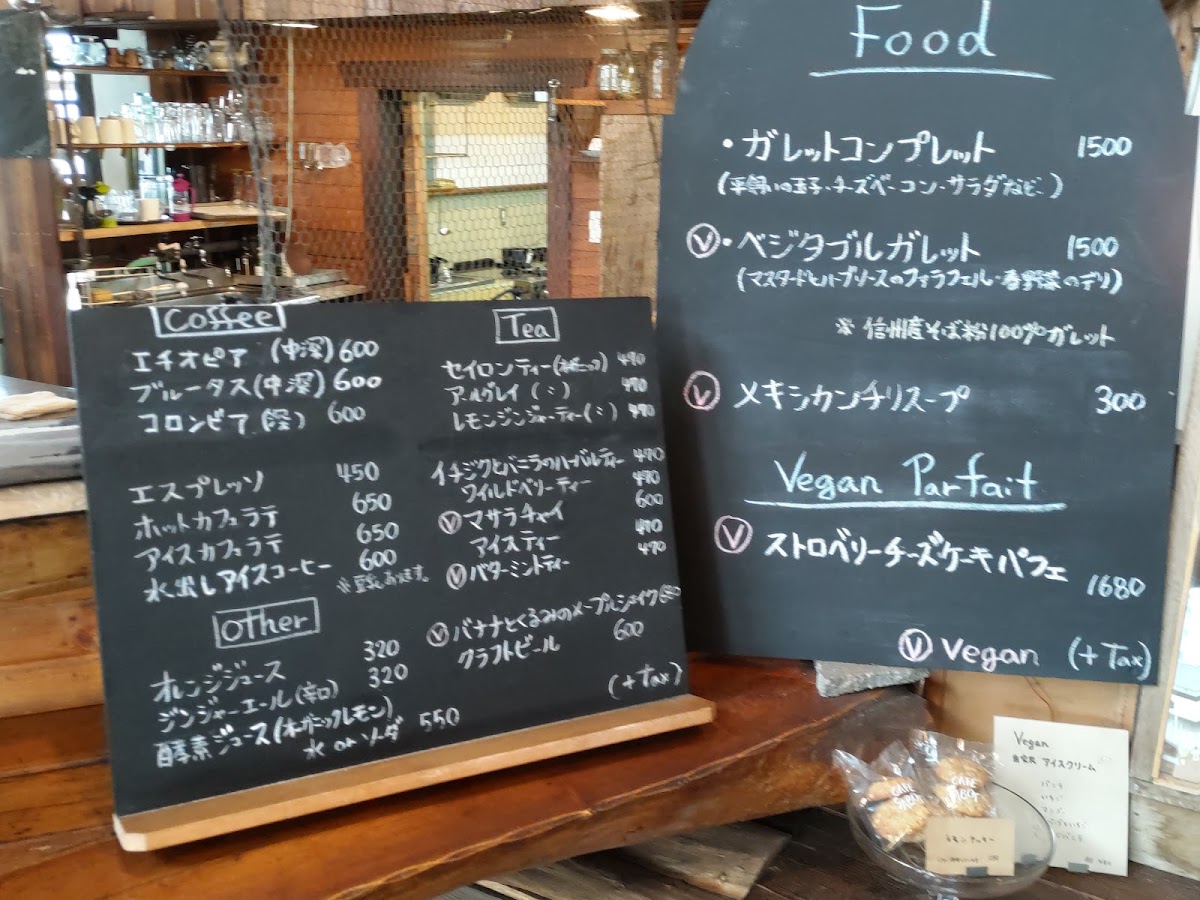 Coffee
エチオピア (中深) 600
ブルータス (中深) 600
コロンビア (深) 600
エスプレッソ 450
ホットカフェラテ 650
アイスカフェラテ 650
水出しアイスコーヒー 600
※豆乳あります。
Other
オレンジジュース 320
ジンジャーエール (辛口) 320
酵素ジュース (オーガニックレモン)
水 or ソーダ 550
Tea
セイロンティー (オーガニック) 490
アールグレイ (〃) 490
レモンジンジャーティー (〃) 490
イチジクとバニラのハーバルティー 490
ワイルドベリーティー 490
Ⓥ マサラチャイ 600
アイスティー 490
Ⓥ バターミントティー 490
Ⓥ バナナとくるみのメープルシェイク
クラフトビール 600
(+Tax)
Food
・ガレットコンプレット 1500
(平飼いの玉子・チーズ・ベーコン・サラダなど)
Ⓥ・ベジタブルガレット 1500
(マスタードとハーブソースのファラフェル・春野菜のデリ)
※ 信州産そば粉100%ガレット
Ⓥ メキシカンチリスープ 300
Vegan Parfait
Ⓥ ストロベリーチーズケーキパフェ
1680
Ⓥ Vegan (+Tax)
Vegan
自家製 アイスクリーム
バナナ
いちご
マンゴー
CAFE
SABOT
CAFE
SABOT
レモンクッキー